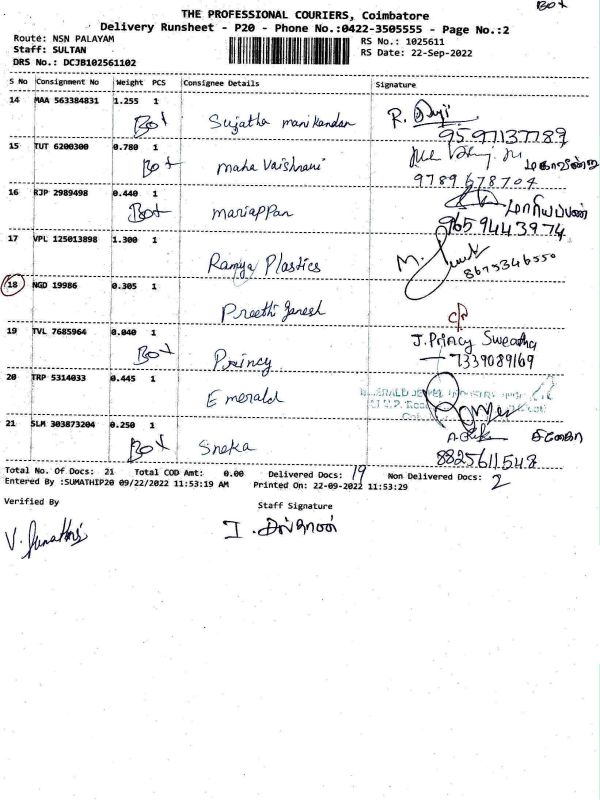 Box
THE PROFESSIONAL COURIERS, Coimbatore
Delivery Runsheet - P20 - Phone No.:0422-3505555 - Page No.:2
Route: NSN PALAYAM
RS No.: 1025611
Staff: SULTAN
RS Date: 22-Sep-2022
DRS No.: DCJB102561102
S No Consignment No Weight PCS Consignee Details Signature
14 MAA 563384831 1.255 1
Box Sujatha manikandan R. Suji
9597137789
15 TUT 6200300 0.780 1
Box maha Vaishnavi
9789678704
16 RJP 2989498 0.440 1
Box mariappan மாரியப்பன்
9659443974
17 VPL 125013898 1.300 1
Ramya Plastics M.
8675346550
18 NGD 19986 0.305 1
Preethi Ganesh
19 TVL 7685964 0.040 1
Box Princy J. Princy Sweatha
7339089169
20 TRP 5314033 0.445 1
Emerald EMERALD JEWEL INDUSTRY
21 SLM 303873204 0.250 1
Box Sneka சினேகா
8825611548
Total No. Of Docs: 21 Total COD Amt: 0.00 Delivered Docs: 19 Non Delivered Docs: 2
Entered By :SUMATHIP20 09/22/2022 11:53:19 AM Printed On: 22-09-2022 11:53:29
Verified By
Staff Signature
V. Sumathi